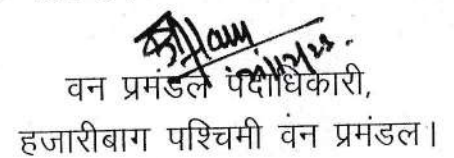 वन प्रमंडल पदाधिकारी,
हजारीबाग पश्चिमी वन प्रमंडल।